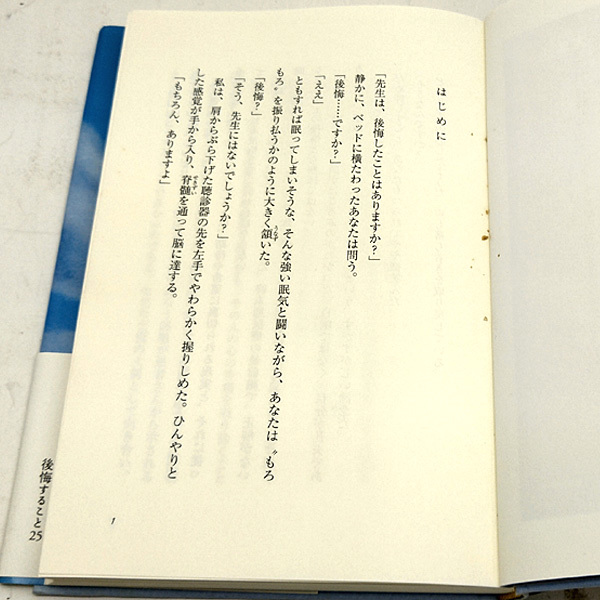 はじめに
「先生は、後悔したことはありますか？」
静かに、ベッドに横たわったあなたは問う。
「後悔……ですか？」
「ええ」
ともすれば眠ってしまいそうな、そんな強い眠気と闘いながら、あなたは〝もろ
もろ〟を振り払うかのように大きく頷いた。
うなず
「後悔？」
「そう、先生にはないでしょうか？」
私は、肩からぶら下げた聴診器の先を左手でやわらかく握りしめた。ひんやりと
した感覚が手から入り、脊髄を通って脳に達する。
せきずい
「もちろん、ありますよ」
1
後悔すること25